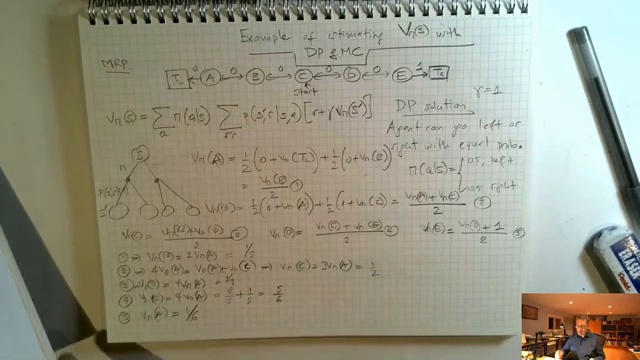 Example of estimating Vπ(s) with
DP & MC
MRP
T_L 0 A 0 B 0 C 0 D 0 E 1 T_R
Start
Vπ(s) = Σ_a π(a|s) Σ_s',r p(s',r|s,a) [r+γVπ(s')]
DP solution γ=1
Agent can go left or
right with equal prob.
π(a|s) = 0.5, left
0.5 right
(s)
π
s'
Vπ(A) = 1/2 (0+Vπ(T_L)) + 1/2 (0+Vπ(B))
= Vπ(B)/2 ①
Vπ(B) = 1/2 (0+Vπ(A)) + 1/2 (0+Vπ(C)) = (Vπ(A)+Vπ(C))/2 ②
Vπ(C) = (Vπ(B)+Vπ(D))/2 ③ Vπ(D) = (Vπ(C)+Vπ(E))/2 ④ Vπ(E) = (Vπ(D)+1)/2 ⑤
① ⇒ Vπ(B) = 2Vπ(A) = 1/2
② ⇒ Vπ(C) = 3Vπ(A) = 1/2
③ Vπ(D) = 4Vπ(A) = 2/3
④ Vπ(E) = = 5/6
⑤ Vπ(A) = 1/6
ERASER